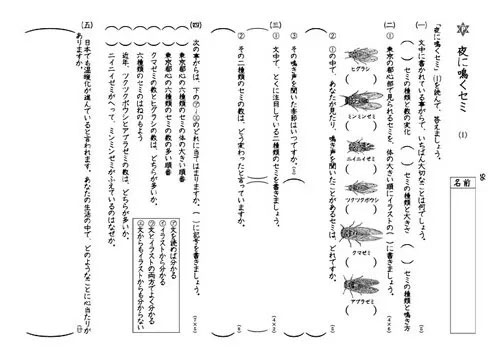 夜に鳴くセミ (1)
名前
「夜に鳴くセミ(1)」を読んで、答えましょう。
(一) 文中に書かれている事がらで、いちばん大切なことは何でしょう。
( ) セミの種類と数の変化 ( ) セミの種類と大きさ ( ) セミの種類と鳴き方
(二) ① 東京の都心で見られるセミを、体の大きい順にイラストの( )に書きましょう。
ヒグラシ
ミンミンゼミ
ニイニイゼミ
ツクツクボウシ
クマゼミ
アブラゼミ
② ①の中で、あなたが見たり、鳴き声を聞いたことがあるセミは、どれですか。
③ その鳴き声を聞いた季節はいつですか。
(三) ① 文中で、とくに注目している二種類のセミを書きましょう。
② その二種類のセミの数は、どう変わったと言っていますか。
(四) 次の事がらは、下の㋐~㋓のどれに当てはまりますか。( )に記号を書きましょう。
( ) 東京都心の六種類のセミの体の大きい順番
( ) 東京都心の六種類のセミの数の多い順番
( ) 六種類のセミのはねのもよう
( ) クマゼミの数とヒグラシの数は、どちらが多いか。
( ) 近年、ツクツクボウシとアブラゼミの数は、どちらが多いか。
( ) ニイニイゼミがへって、ミンミンゼミがふえているのはなぜか。
㋐ 文を読めば分かる
㋑ イラストから分かる
㋒ 文とイラストの両方でよく分かる
㋓ 文からもイラストからも分からない
(五) 日本でも温暖化が進んでいると言われます。あなたの生活の中で、どのようなことに心当たりが
ありますか。